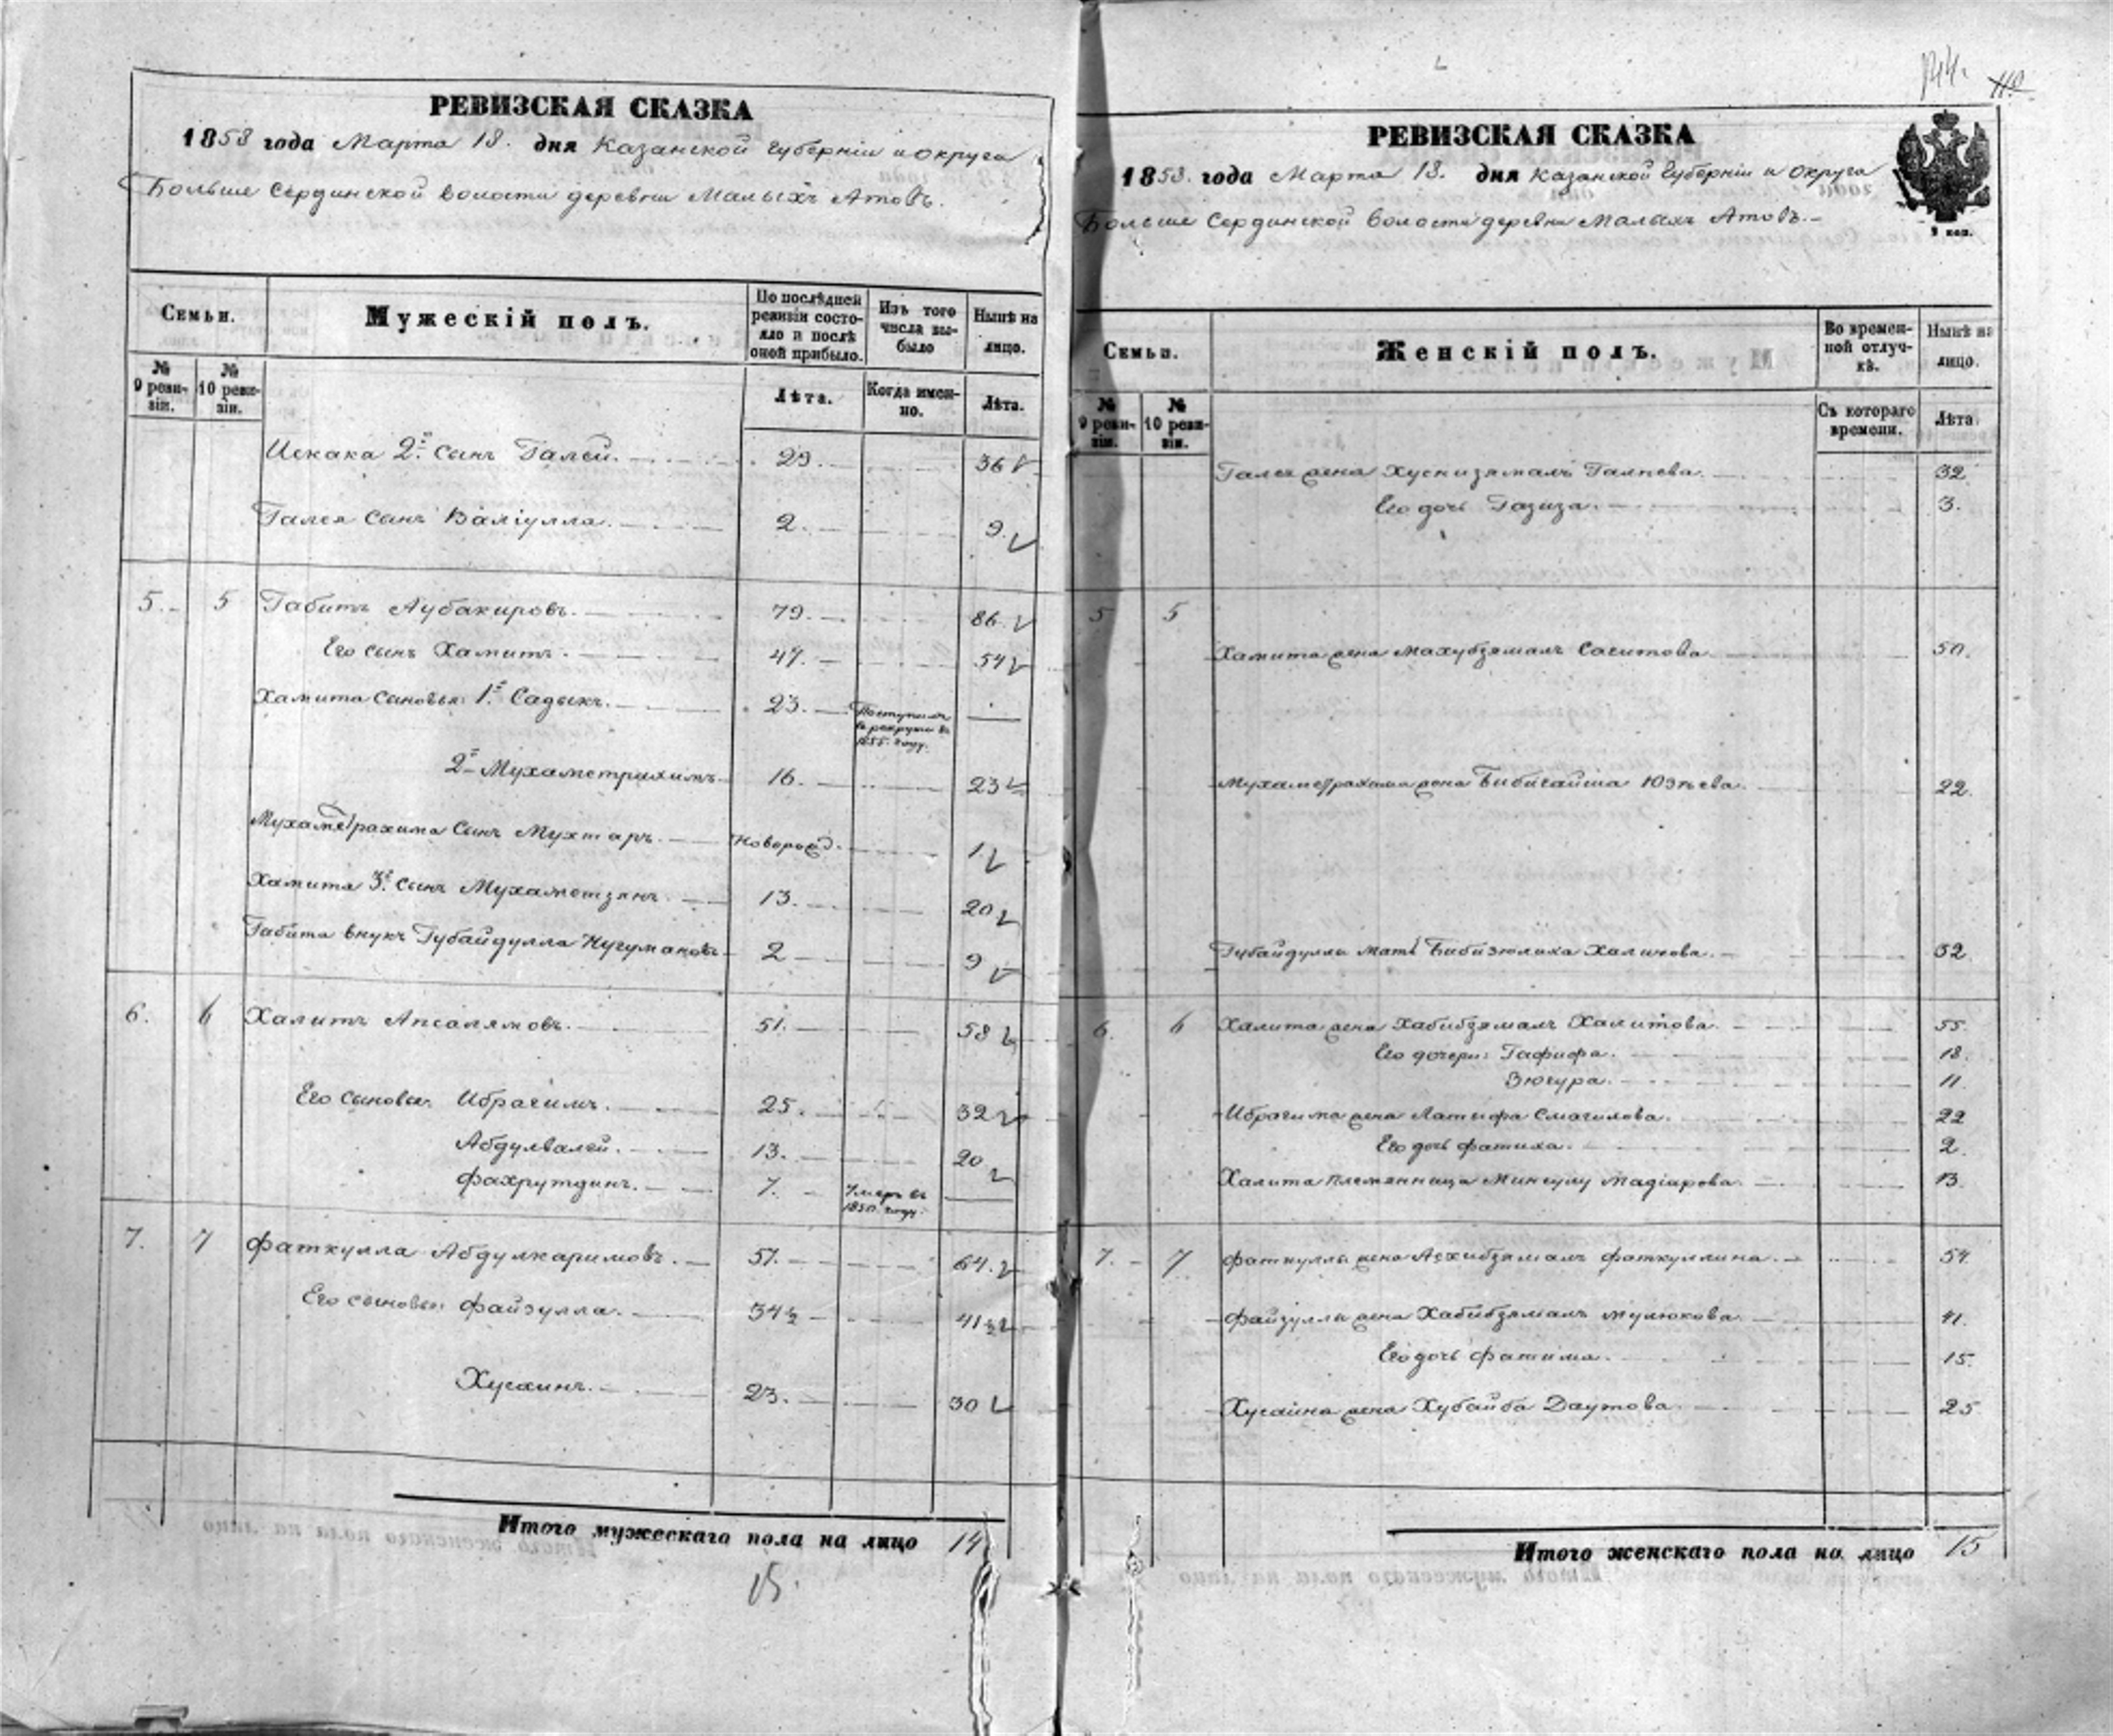 РЕВИЗСКАЯ СКАЗКА
1858 года Марта 18. дня Казанской Губерніи и округа
Больше Сердинской волости деревни Малыхъ Атовъ.
Семьи.
Мужескій полъ.
По послѣдней ревизіи состояло и послѣ оной прибыло.
Изъ того числа выбыло
Нынѣ на лицо.
№ 9 ревизіи.
№ 10 ревизіи.
Лѣта.
Когда именно.
Лѣта.
Искака 2й сынъ Галей. 29. 36
Галея сынъ Валіулла. 2. 9.
5. 5 Габитъ Аубакировъ. 79. 86.
Его сынъ Хамитъ. 47. 54
Хамита сыновья: 1й Садыкъ. 23. Поступилъ въ рекруты въ 1855. году. —
2й Мухаметрахимъ 16. 23
Мухаметрахима сынъ Мухтаръ. Новорожд. 1.
Хамита 3й сынъ Мухаметзянъ. 13. 20
Габита внукъ Губайдулла Нугумановъ 2 9
6. 6 Халитъ Апсалямовъ. 51. 58
Его сыновья: Ибрагимъ. 25. 32
Абдулвалей. 13. 20
Фахрутдинъ. 7. Умеръ въ 1850. году. —
7. 7 Фаткулла Абдулкаримовъ. 57. 64.
Его сыновья: Файзулла. 34½ 41½
Хусаинъ. 23. 30
Итого мужескаго пола на лицо 14
15.
144.
РЕВИЗСКАЯ СКАЗКА
1858. года Марта 18. дня Казанской Губерніи и округа
Больше Сердинской волости деревни Малыхъ Атовъ.
Семьи.
Женскій полъ.
Во временной отлучкѣ.
Нынѣ на лицо.
№ 9 ревизіи.
№ 10 ревизіи.
Съ котораго времени.
Лѣта.
Галея жена Хуснизямалъ Галиева. 32
Его дочь Газиза. 3.
5 5
Хамита жена Махубзямалъ Сагитова 50.
Мухаметрахима жена Бибигайша Юзѣева. 22.
Губайдуллы мать Бибизюлиха Халитова. 32
6. 6 Халита жена Хабибзямалъ Халитова. 55.
Его дочери: Гафифа. 18.
Зюгура. 11.
Ибрагима жена Латыфа Смагилова. 22
Его дочь Фатиха. 2.
Халита племянница Мингулу Мадіарова. 13.
7. 7 Фаткуллы жена Асхибзямалъ Фаткуллина. 54.
Файзуллы жена Хабибзямалъ Мулюкова 41.
Его дочь Фатима. 15.
Хусаина жена Хубайба Даутова 25
Итого женскаго пола на лицо 15